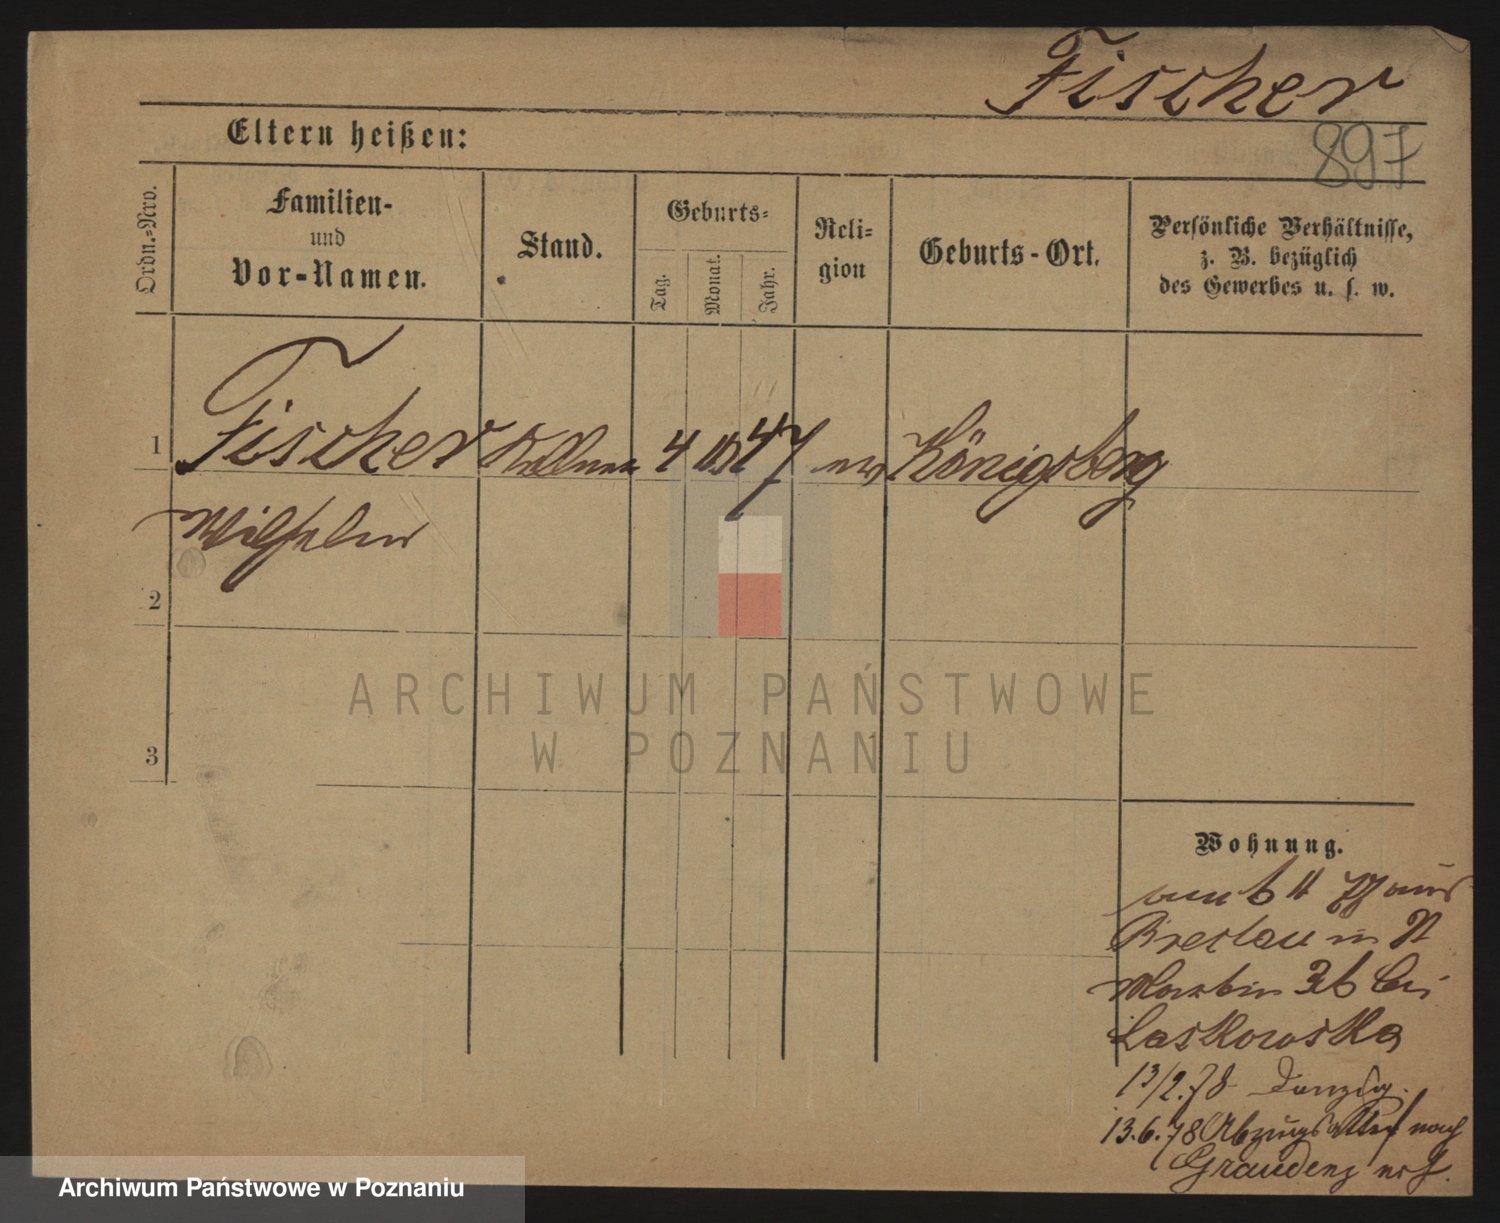 Fischer
897
Eltern heißen:
Ordn.=Nro.
Familien-
und
Vor-Namen.
Stand.
Geburts=
Tag.
Monat.
Jahr.
Reli=
gion
Geburts-Ort.
Persönliche Verhältnisse,
z. B. bezüglich
des Gewerbes u. s. w.
1
Fischer Kellner 4 10 47 Königsberg
Wilhelm
2
3
ARCHIWUM PAŃSTWOWE
W POZNANIU
Wohnung.
aus
Breslau in St
Martin 36 bei
Laskowska
13/2.78 Danzig.
13.6.78 Abzugsattest nach
Graudenz
Archiwum Państwowe w Poznaniu